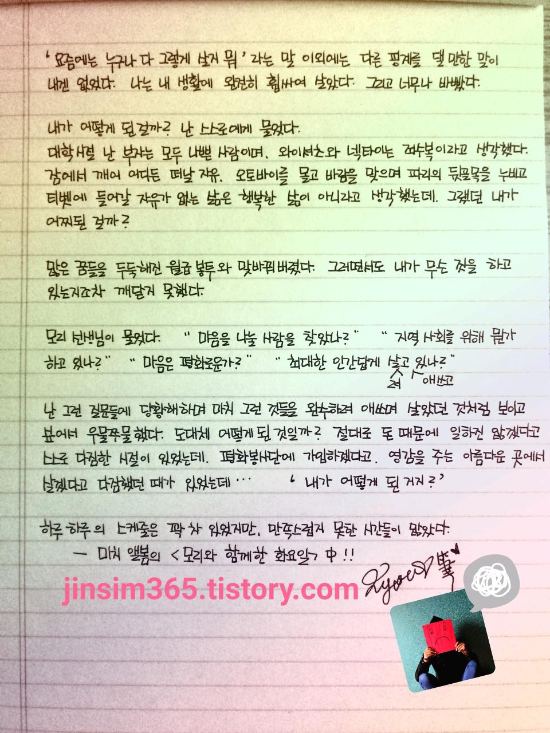 '요즘에는 누구나 다 그렇게 살지 뭐' 라는 말 이외에는 다른 핑계를 댈 만한 말이
내겐 없었다. 나는 내 생활에 완전히 휩싸여 살았다. 그리고 너무나 바빴다.
내가 어떻게 된 걸까? 난 스스로에게 물었다.
대학시절 난 부자는 모두 나쁜 사람이며, 와이셔츠와 넥타이는 죄수복이라고 생각했다.
잠에서 깨어 어디든 떠날 자유, 오토바이를 몰고 바람을 맞으며 파리의 뒷골목을 누비고
티벳에 들어갈 자유가 없는 삶은 행복한 삶이 아니라고 생각했는데. 그랬던 내가
어찌된 걸까?
많은 꿈들을 두둑해진 월급 봉투와 맞바꿔버렸다. 그러면서도 내가 무슨 짓을 하고
있는지조차 깨닫지 못했다.
모리 선생님이 물었다. "마음을 나눌 사람을 찾았나?" "지역 사회를 위해 뭔가
하고 있나?" "마음은 평화로운가?" "최대한 인간답게 살고 있나?"
려 애쓰고
난 그런 질문들에 당황해하며 마치 그런 것들을 완수하려 애쓰며 살았던 것처럼 보이고
싶어서 우물쭈물했다. 도대체 어떻게 된 것일까? 절대로 돈 때문에 일하진 않겠다고
스스로 다짐한 시절이 있었는데. 평화봉사단에 가입하겠다고, 영감을 주는 아름다운 곳에서
살겠다고 다짐했던 때가 있었는데… '내가 어떻게 된 거지?'
하루 하루의 스케줄은 꽉 차 있었지만, 만족스럽지 못한 시간들이 많았다.
— 미치 앨봄의 <모리와 함께한 화요일> 中 !!
jinsim365.tistory.com